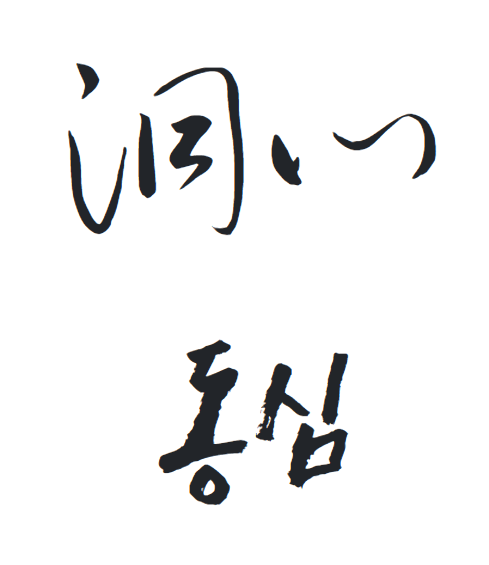 洞心
동심